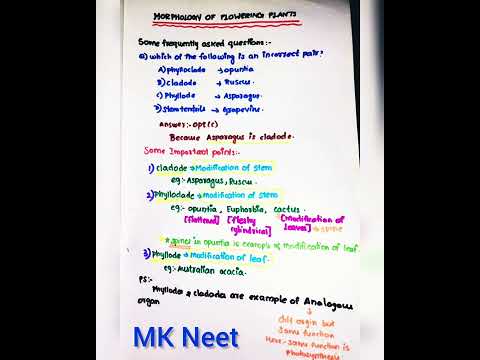 MORPHOLOGY OF FLOWERING PLANTS
Some frequently asked questions:-
Q) Which of the following is an incorrect pair?
A) Phylloclade → opuntia
B) Cladode → Ruscus
C) Phyllode → Asparagus
D) Stem tendrils → Grapevine.
Answer:- opt (c)
Because Asparagus is cladode.
Some Important points:-
1) Cladode → Modification of stem
eg:- Asparagus, Ruscus
2) Phylloclade → Modification of stem
eg:- opuntia, Euphorbia, cactus
[flattened] [fleshy cylindrical] [modification of leaves] → spine
* spines in opuntia is example of modification of leaf.
3) Phyllode → Modification of leaf.
eg:- Australian acacia.
PS:-
Phyllode & cladode are example of Analogous
organ
↓
diff origin but
same function
Here:- same function is
Photosynthesis
MK Neet